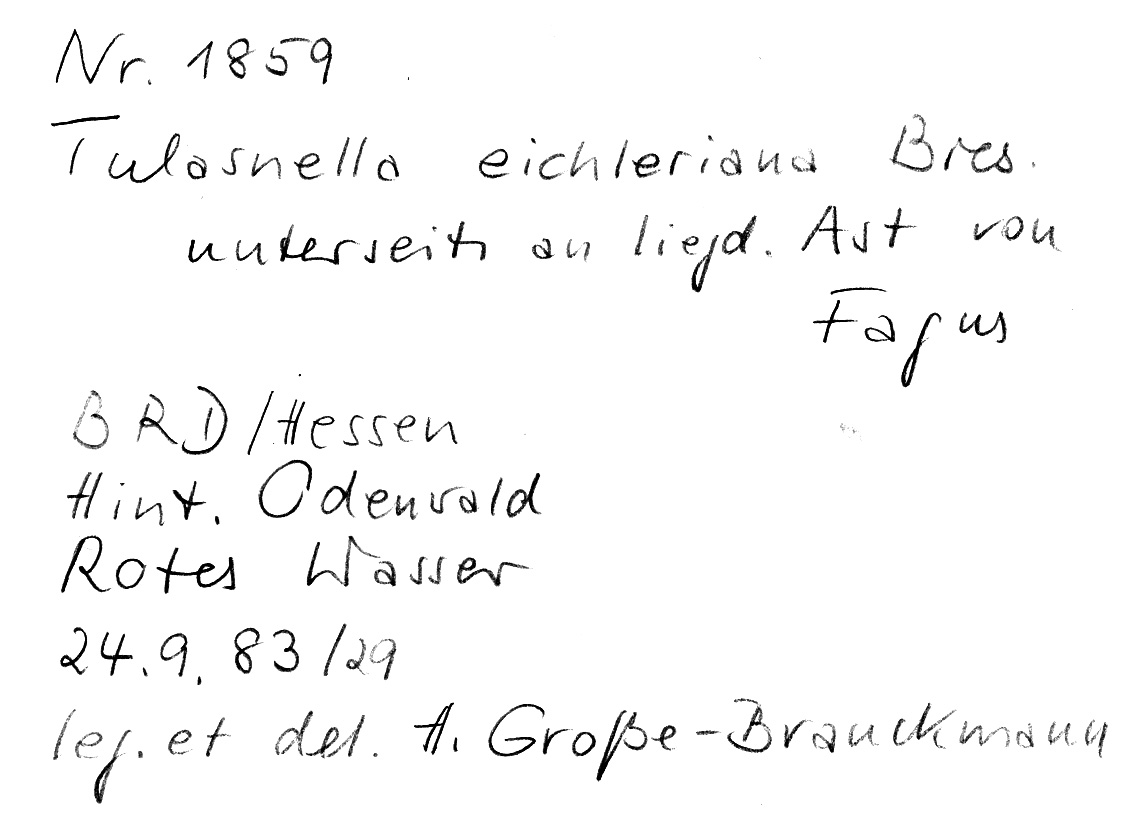 Nr. 1859
Tulasnella eichleriana Bres.
unterseits an liegd. Ast von
Fagus
BRD/Hessen
Hint. Odenwald
Rotes Wasser
24.9.83/29
leg. et det. H. Große-Brauckmann